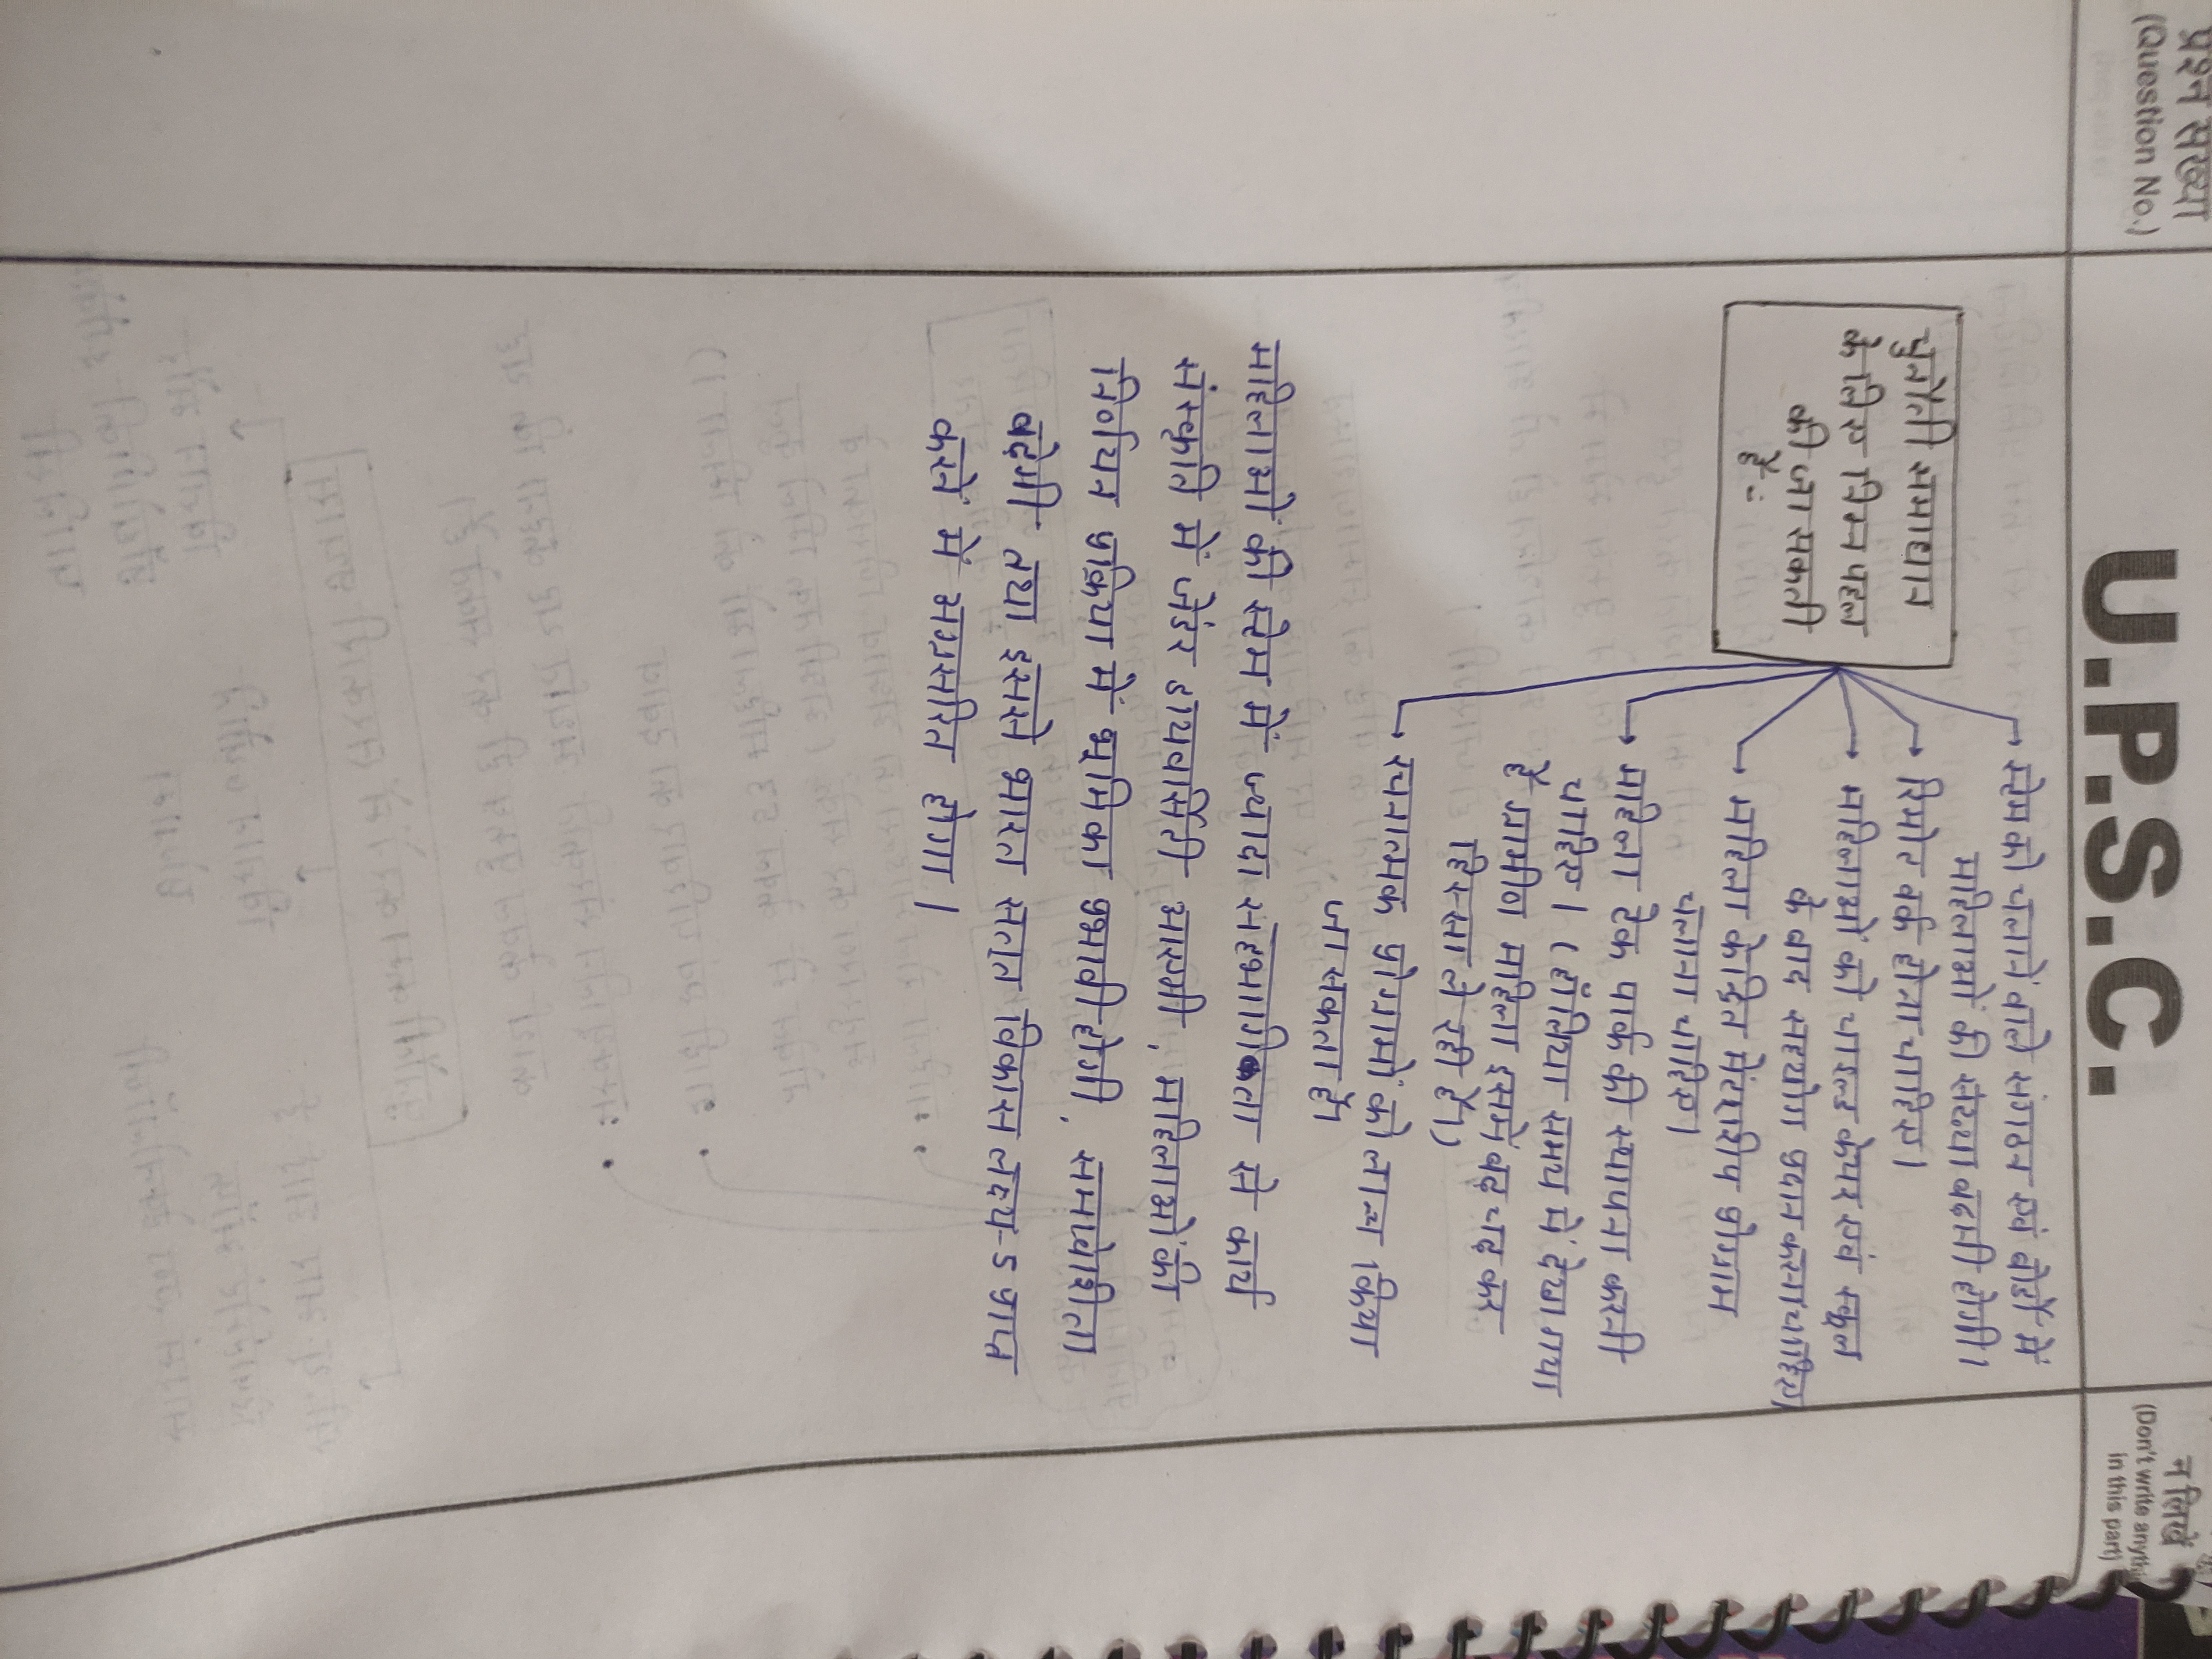 प्रश्न संख्या
(Question No.)
U.P.S.C.
न लिखें
(Don't write anything
in this part)
चुनौती समाधान
के लिए निम्न पहल
की जा सकती
हैं :-
स्टेम को चलाने वाले संगठन एवं बोर्ड में
महिलाओं की संख्या बढ़ानी होगी।
रिमोट वर्क होना चाहिए।
महिलाओं को चाइल्ड केयर एवं स्कूल
के बाद सहयोग प्रदान करना चाहिए।
महिला केन्द्रित मेंटरशिप प्रोग्राम
चलाना चाहिए।
महिला टेक पार्क की स्थापना करनी
चाहिए। (हालिया समय में देखा गया
है ग्रामीण महिला इसमें बढ़ चढ़ कर
हिस्सा ले रही है।)
रचनात्मक प्रोग्रामों को लान्च किया
जा सकता है।
महिलाओं की स्टेम में ज्यादा सहभागिता से कार्य
संस्कृति में जेंडर डायवर्सिटी आएगी, महिलाओं की
निर्णयन प्रक्रिया में भूमिका प्रभावी होगी, समावेशीता
बढ़ेगी तथा इससे भारत सतत विकास लक्ष्य-5 प्राप्त
करने में अग्रसरित होगा।